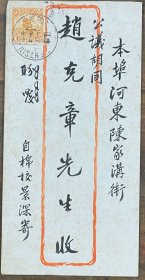 本埠河東陳家溝街
公議胡同
趙克章先生收
盼覆
自棉校景深寄